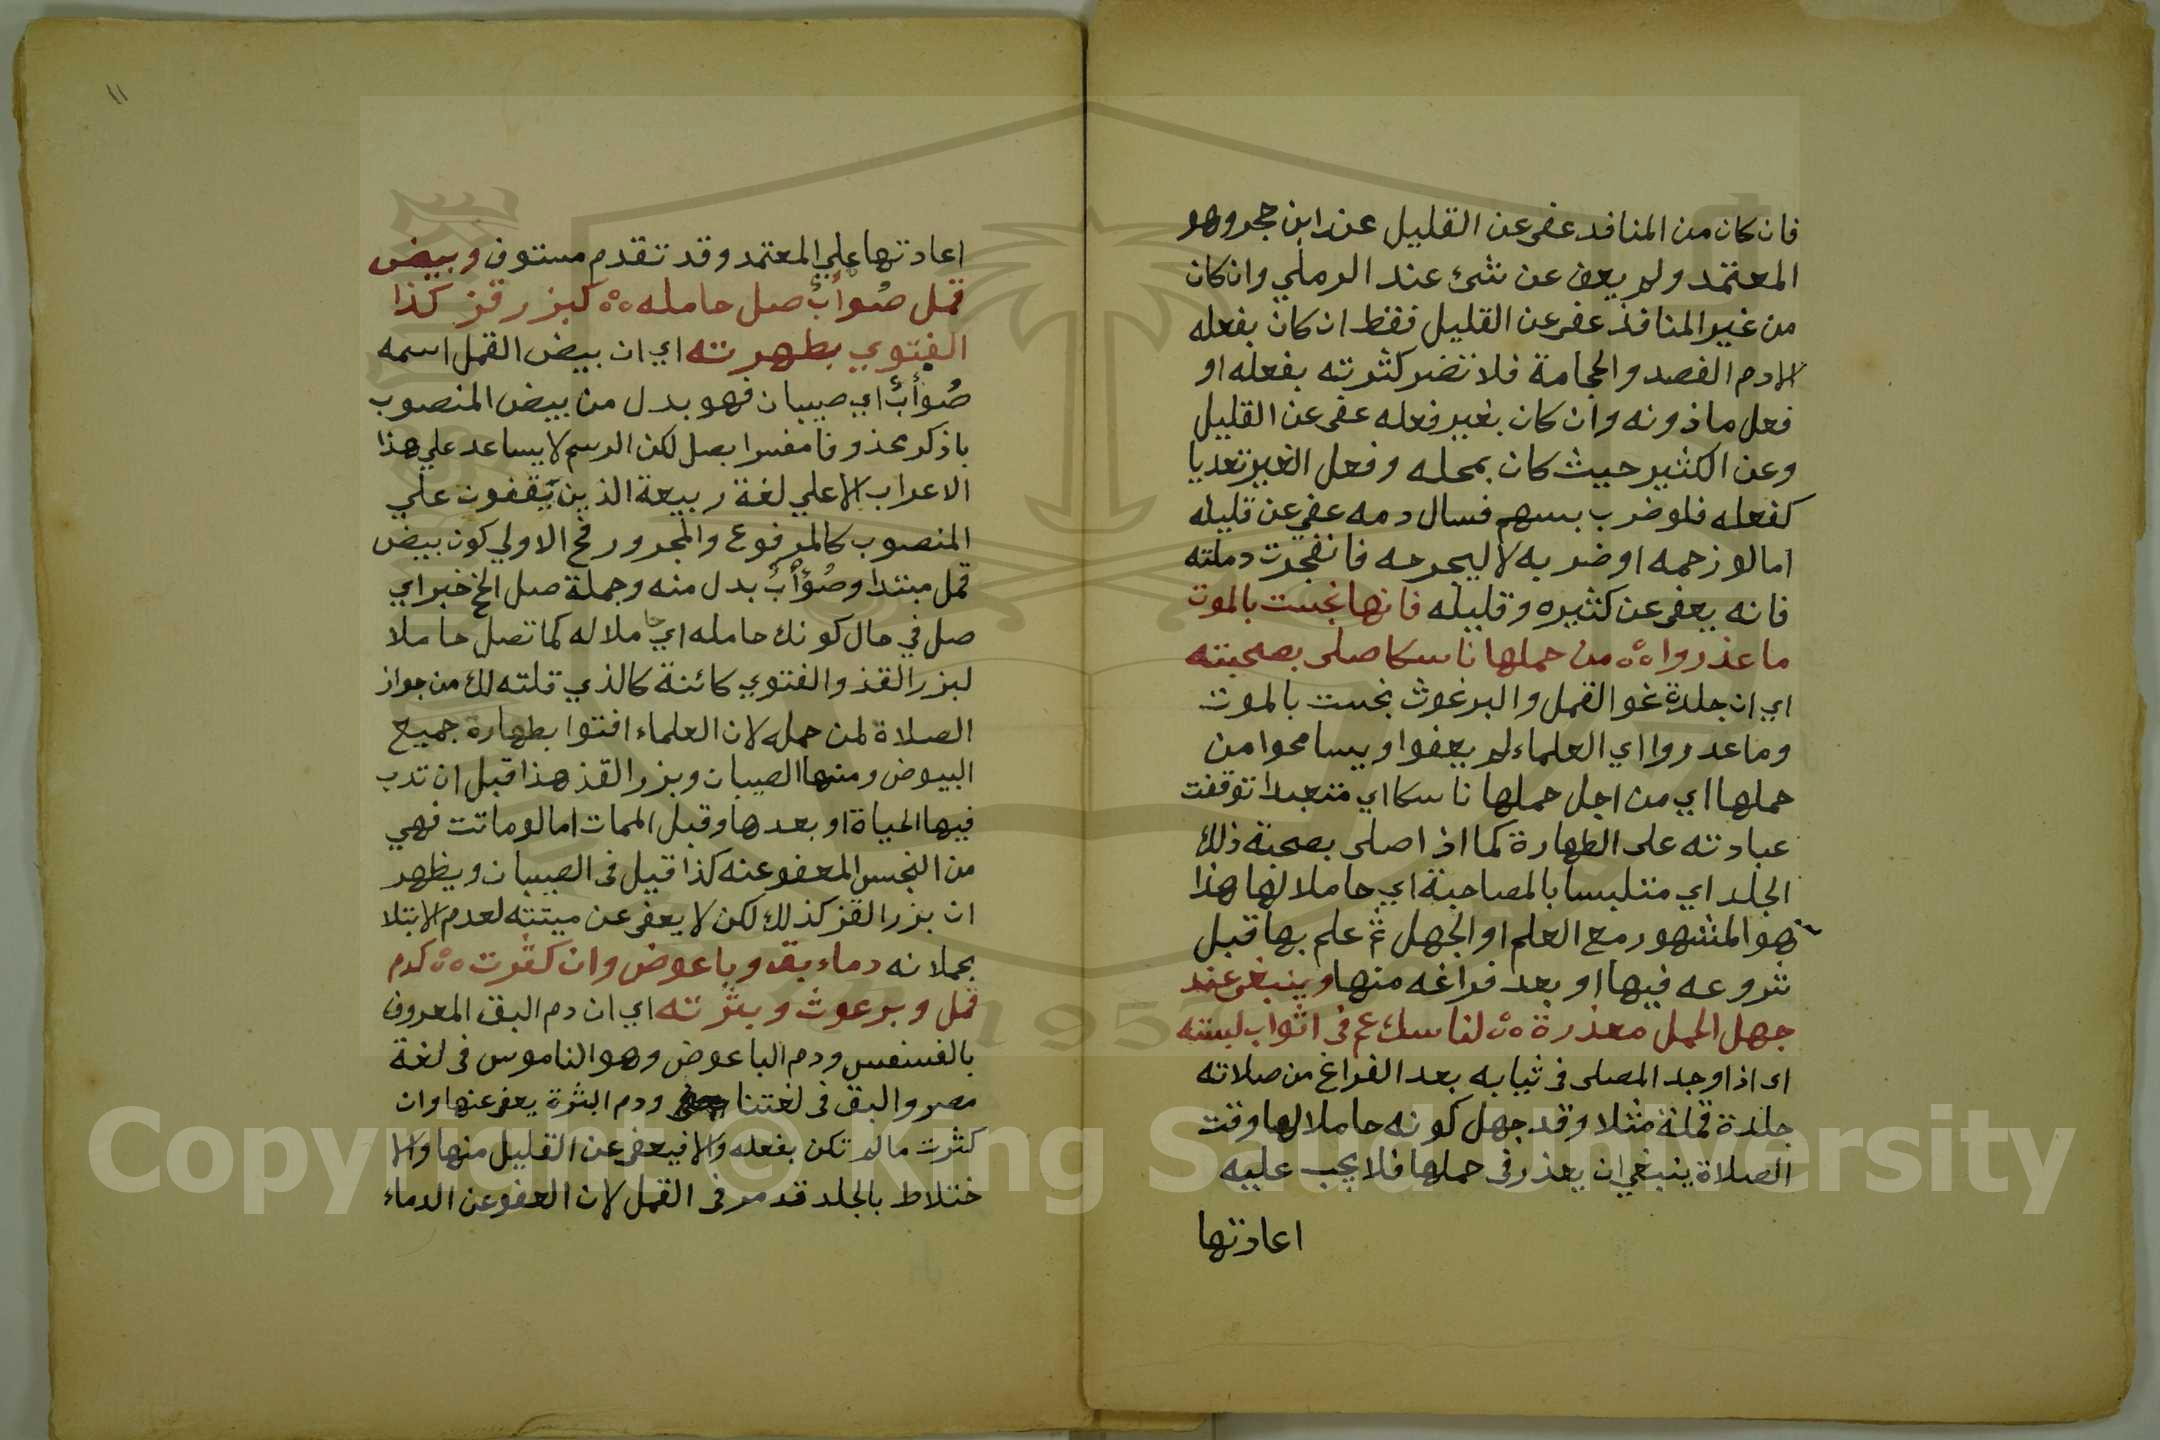 فان كان من المنافد عفى عن القليل عند ابن حجر وهو
المعتمد ولم يعف عن شئ عند الرملي وان كان
من غير المنافذ عفى عن القليل فقط ان كان بفعله
الادم الفصد والحجامة فلا تضر كثرته بفعله او
فعل ماذونه وان كان بغير فعله عفى عن القليل
وعن الكثير حيث كان بمحله وفعل الغير تعديا
كفعله فلو ضرب بسهم فسال دمه عفي عن قليله
امالو زحمه او ضربه لا ليجرحه فانفجرت دملته
فانه يعفى عن كثيره وقليله فانها نجست بالموت
ما عذروا ٥٥ من حملها ناسكا صلى بصحبته
اي ان جلدة نحو القمل والبرغوث نجست بالموت
وما عدروا اي العلماء لم يعفوا ويسامحوا من
حملها اي من اجل حملها ناسكا اي متعبدا توقفت
عبادته على الطهارة كما اذا صلى بصحبة ذلك
الجلد اي متلبسا بالمصاحبة اي حاملا لها هذا
هو المشهور مع العلم او الجهل ثم علم بها قبل
شروعه فيها او بعد فراغه منها وينبغى عند
جهل الحمل معذرة ٥٥ لناسك عم فى اثواب لبسته
اى اذا وجد المصلى فى ثيابه بعد الفراغ من صلاته
جلدة قملة مثلا وقد جهل كونه حاملا لها وقت
الصلاة ينبغي ان يعذر فى حملها فلا يجب عليه
اعادتها
١١
اعادتها علي المعتمد وقد تقدم مستوفى وبيض
قمل صُوأبٌ صل حامله ٥٥ كبزر قز كذا
الفتوي بطهرته اي ان بيض القمل اسمه
صُوأبٌ اي صيبان فهو بدل من بيض المنصوب
باذكر محذوفا مفسرا بصل لكن الرسم لا يساعد علي هذا
الاعراب الاعلي لغة ربيعة الذين يقفون علي
المنصوب كالمرفوع والمجرور فح الاولي كون بيض
قمل مبتدا وصُؤابٌ بدل منه وجملة صل الخ خبر اي
صل في حال كونك حامله اي حاملا له كما تصل حاملا
لبزر القذ والفتوي كائنة كالذي قلته لك من جواز
الصلاة لمن حمله لان العلماء افتوا بطهارة جميع
البيوض ومنها الصيبان وبزر القذ هذا قبل ان تدب
فيها الحياة او بعدها وقبل الممات امالو ماتت فهي
من النجس المعفو عنه كذا قيل فى الصيبان ويظهر
ان بزر القز كذلك لكن لا يعفى عن ميتته لعدم الابتلا
بحملانه دماء بق وباعوض وان كثرت ٥٥ كدم
قمل وبرعوث وبثرته اي ان دم البق المعروف
بالفسفس ودم الباعوض وهو الناموس فى لغة
مصر والبق فى لغتنا ودم البثرة يعفى عنها وان
كثرت مالم تكن بفعله والا فيعفى عن القليل منها والا
ختلاط بالجلد قد مر فى القمل لان العفو عن الدماء
Copyright © King Saud University
1957